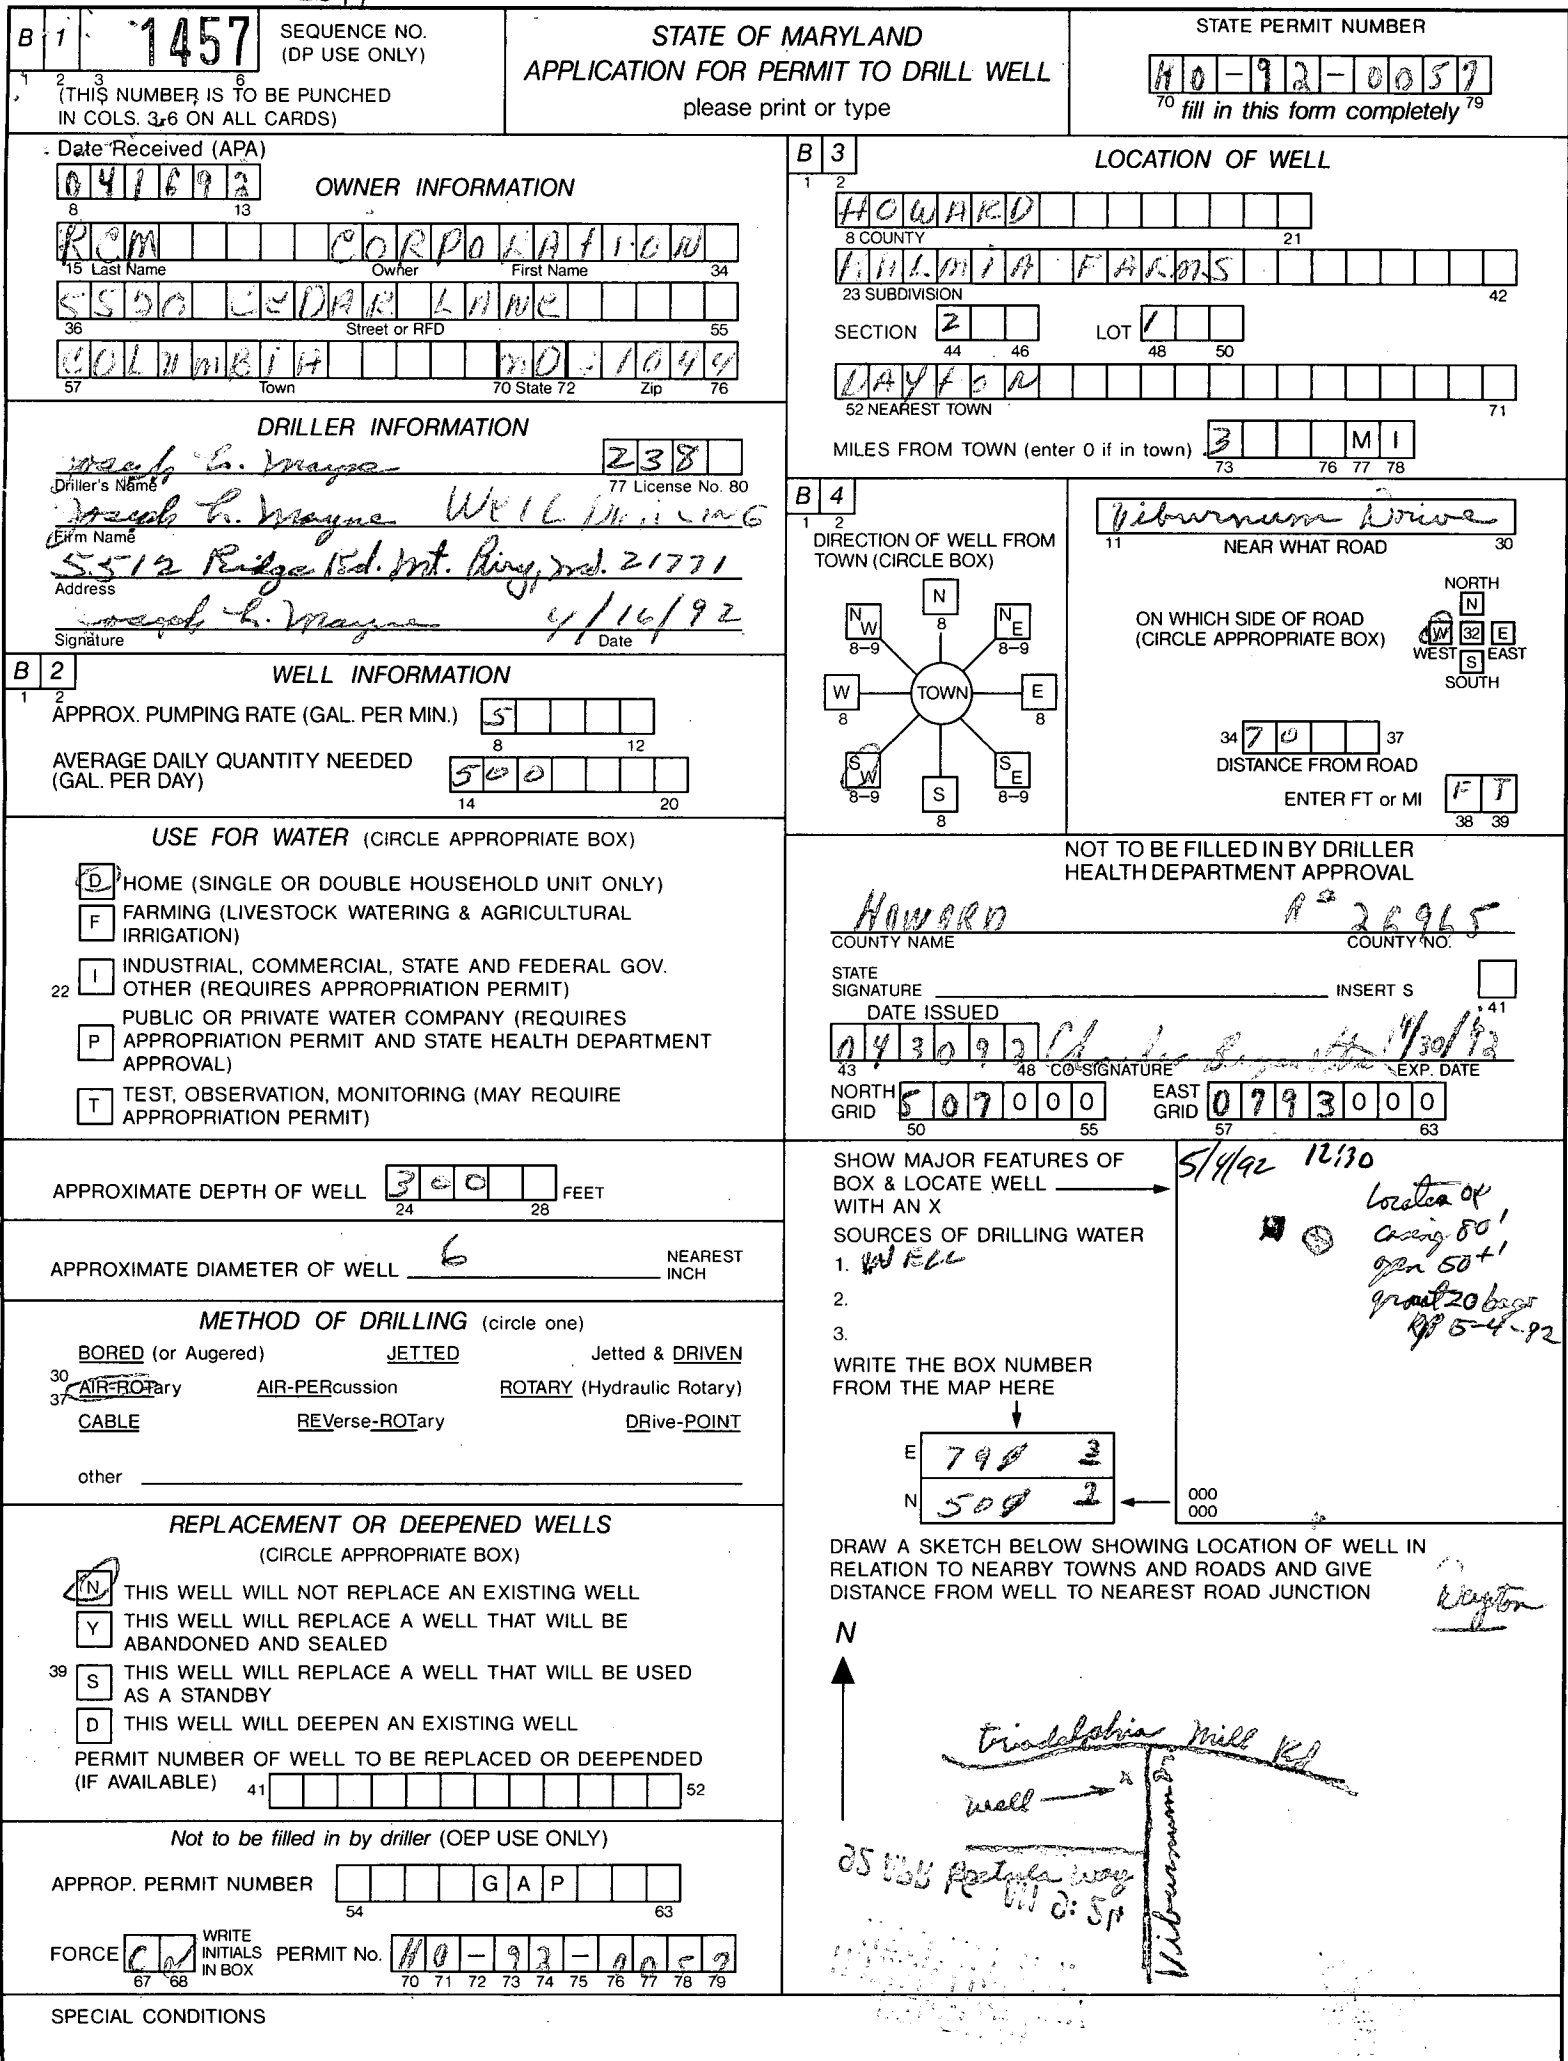 B 1 1457 SEQUENCE NO. (DP USE ONLY)
1 2 3 6
(THIS NUMBER IS TO BE PUNCHED
IN COLS. 3-6 ON ALL CARDS)
STATE OF MARYLAND
APPLICATION FOR PERMIT TO DRILL WELL
please print or type
STATE PERMIT NUMBER
HO-92-0057
70 fill in this form completely 79
Date Received (APA)
041692
8 13
OWNER INFORMATION
RCM CORPORATION
15 Last Name Owner First Name 34
5520 CEDAR LANE
36 Street or RFD 55
COLUMBIA MD 21044
57 Town 70 State 72 Zip 76
DRILLER INFORMATION
Joseph L. Mayne 238
Driller's Name 77 License No. 80
Joseph L. Mayne WELL DRILLING
Firm Name
5512 Ridge Rd. Mt. Airy, Md. 21771
Address
Joseph L. Mayne 4/16/92
Signature Date
B 2 WELL INFORMATION
1 2
APPROX. PUMPING RATE (GAL. PER MIN.) 5
8 12
AVERAGE DAILY QUANTITY NEEDED
(GAL. PER DAY) 500
14 20
USE FOR WATER (CIRCLE APPROPRIATE BOX)
D HOME (SINGLE OR DOUBLE HOUSEHOLD UNIT ONLY)
F FARMING (LIVESTOCK WATERING & AGRICULTURAL
IRRIGATION)
22 I INDUSTRIAL, COMMERCIAL, STATE AND FEDERAL GOV.
OTHER (REQUIRES APPROPRIATION PERMIT)
P PUBLIC OR PRIVATE WATER COMPANY (REQUIRES
APPROPRIATION PERMIT AND STATE HEALTH DEPARTMENT
APPROVAL)
T TEST, OBSERVATION, MONITORING (MAY REQUIRE
APPROPRIATION PERMIT)
APPROXIMATE DEPTH OF WELL 300 FEET
24 28
APPROXIMATE DIAMETER OF WELL 6 NEAREST
INCH
METHOD OF DRILLING (circle one)
BORED (or Augered) JETTED Jetted & DRIVEN
30
37 AIR-ROTary AIR-PERcussion ROTARY (Hydraulic Rotary)
CABLE REVerse-ROTary DRive-POINT
other
REPLACEMENT OR DEEPENED WELLS
(CIRCLE APPROPRIATE BOX)
N THIS WELL WILL NOT REPLACE AN EXISTING WELL
Y THIS WELL WILL REPLACE A WELL THAT WILL BE
ABANDONED AND SEALED
39 S THIS WELL WILL REPLACE A WELL THAT WILL BE USED
AS A STANDBY
D THIS WELL WILL DEEPEN AN EXISTING WELL
PERMIT NUMBER OF WELL TO BE REPLACED OR DEEPENDED
(IF AVAILABLE) 41 52
Not to be filled in by driller (OEP USE ONLY)
APPROP. PERMIT NUMBER G A P
54 63
FORCE WRITE INITIALS IN BOX PERMIT No. HO-92-0057
67 68 70 71 72 73 74 75 76 77 78 79
SPECIAL CONDITIONS
B 3 LOCATION OF WELL
1 2
HOWARD
8 COUNTY 21
FARMS
23 SUBDIVISION 42
SECTION 2 LOT 1
44 46 48 50
DAYTON
52 NEAREST TOWN 71
MILES FROM TOWN (enter 0 if in town) 3 M I
73 76 77 78
B 4
1 2
DIRECTION OF WELL FROM
TOWN (CIRCLE BOX)
N 8
NW 8-9 NE 8-9
W 8 TOWN E 8
SW 8-9 SE 8-9
S 8
Viburnum Drive
11 NEAR WHAT ROAD 30
ON WHICH SIDE OF ROAD
(CIRCLE APPROPRIATE BOX)
NORTH
N
W 32 E
WEST S EAST
SOUTH
34 70 37
DISTANCE FROM ROAD
ENTER FT or MI F T
38 39
NOT TO BE FILLED IN BY DRILLER
HEALTH DEPARTMENT APPROVAL
HOWARD 26965
COUNTY NAME COUNTY NO.
STATE
SIGNATURE INSERT S
41
DATE ISSUED
043092 4/30/93
43 48 CO SIGNATURE EXP. DATE
NORTH GRID 507000 EAST GRID 0793000
50 55 57 63
SHOW MAJOR FEATURES OF
BOX & LOCATE WELL
WITH AN X
SOURCES OF DRILLING WATER
1. WELL
2.
3.
5/4/92 12:30
Location OK
casing 80'
50+'
grout 20 bags
5-4-92
WRITE THE BOX NUMBER
FROM THE MAP HERE
E 790 3
N 500
000
000
DRAW A SKETCH BELOW SHOWING LOCATION OF WELL IN
RELATION TO NEARBY TOWNS AND ROADS AND GIVE
DISTANCE FROM WELL TO NEAREST ROAD JUNCTION
Dayton
N
Triadelphia Mill Rd
Well
Viburnum Dr
Way